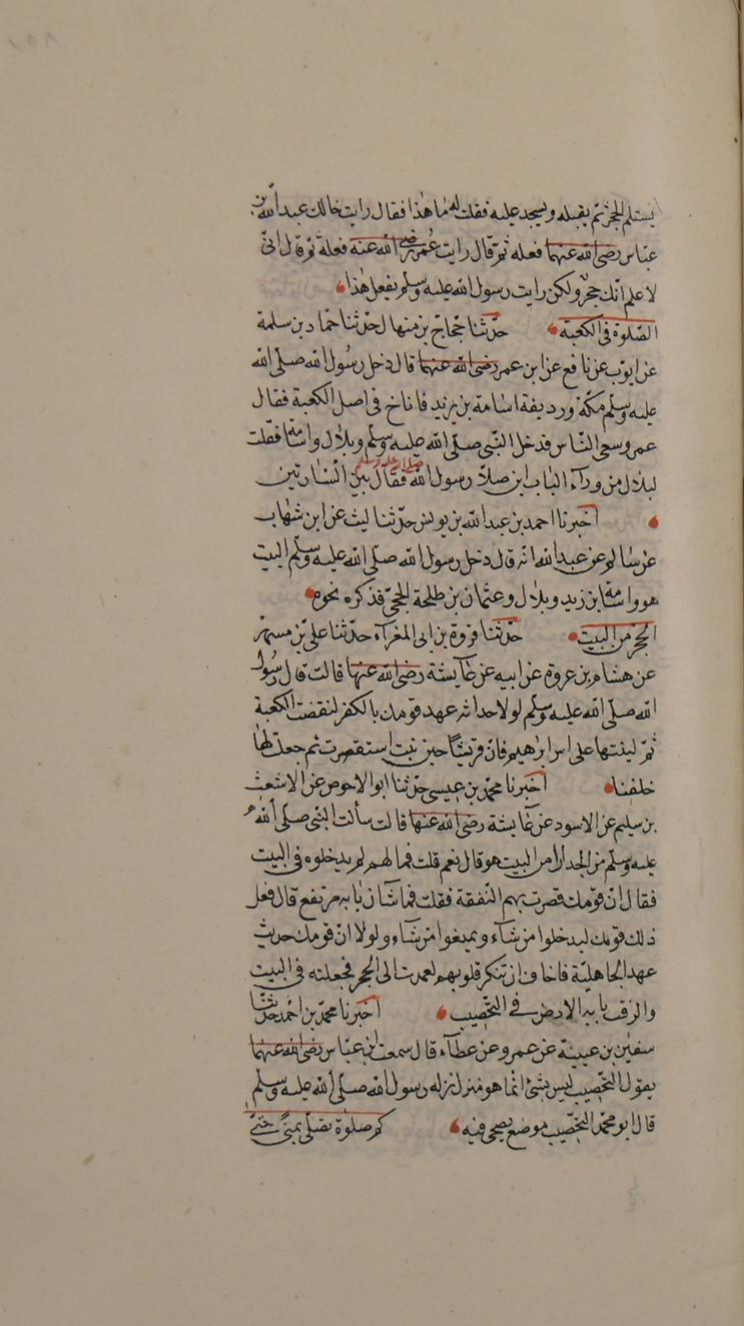 يستلم الحجر ثم يقبله ويسجد عليه فقلت له ما هذا فقال رايت خالك عبد الله بن
عباس رضى الله عنهما فعله ثم قال رايت عمر رضى الله عنه فعله ثم قال انى
لاعلم انك حجر ولكن رايت رسول الله عليه وسلم يفعل هذا
الصلوة فى الكعبة حدثنا حجاج بن منهال حدثنا حماد بن سلمة
عن ايوب عن نافع عن ابن عمر رضى الله عنهما قال دخل رسول الله صلى الله
عليه وسلم مكة ورديفة اسامة بن يزيد فاناخ فى اصل الكعبة فقال
عمر وسعى الناس فدخل النبى صلى الله عليه وسلم وبلال واسامة فقلت
لبلال من ورآء الباب اين صلا رسول الله صلى الله عليه وسلم فقال بين الساريتين
اخبرنا احمد بن عبد الله بن يونس حدثنا ليث عن ابن شهاب
عن سالم عن عبد الله انه قال دخل رسول الله صلى الله عليه وسلم البيت
هو واسامة ابن زيد وبلال وعثمان بن طلحة الحجى فذكره نحوه
الحجر من البيت حدثنا فروة بن ابى المغرآء حدثنا على بن مسهر
عن هشام بن عروة عن ابيه عن عآيشة رضى الله عنها قالت قال رسول
الله صلى الله عليه وسلم لولا حداثه عهد قومك بالكفر لنقضت الكعبة
ثم لبنتها على اس ابرهيم فان قريشا حين بنت استقصرت ثم جعلت لها
خلفنا اخبرنا محمد بن عيسى حدثنا ابو الاحوص عن الاشعث
بن سليم عن الاسود عن عآيشة رضى الله عنها قالت سألت النبى صلى الله
عليه وسلم من الجدار امن البيت هو قال نعم قلت فما لهم لم يدخلوه فى البيت
فقال ان قومك قصرت بهم النفقة فقلت فما شان بابه مرتفع قال فعل
ذلك قومك ليدخلوا من شآء ويمنعوا من شاء ولولا ان قومك حديث
عهد الجاهلية فاخاف ان تنكر قلوبهم لعمدت الى الحجر فجعلته فى البيت
والزقت بابه الارض فى التحصيب اخبرنا محمد بن احمد حدثنا
سفين بن عيينة عن عمرو عن عطآء قال سمعت ابن عباس رضى الله عنهما
يقول التحصيب ليس بشئ انما هو منزل نزله رسول الله صلى الله عليه وسلم
قال ابو محمد التحصيب موضع بصحى فيه كم صلوة يصلى بمنى حتى